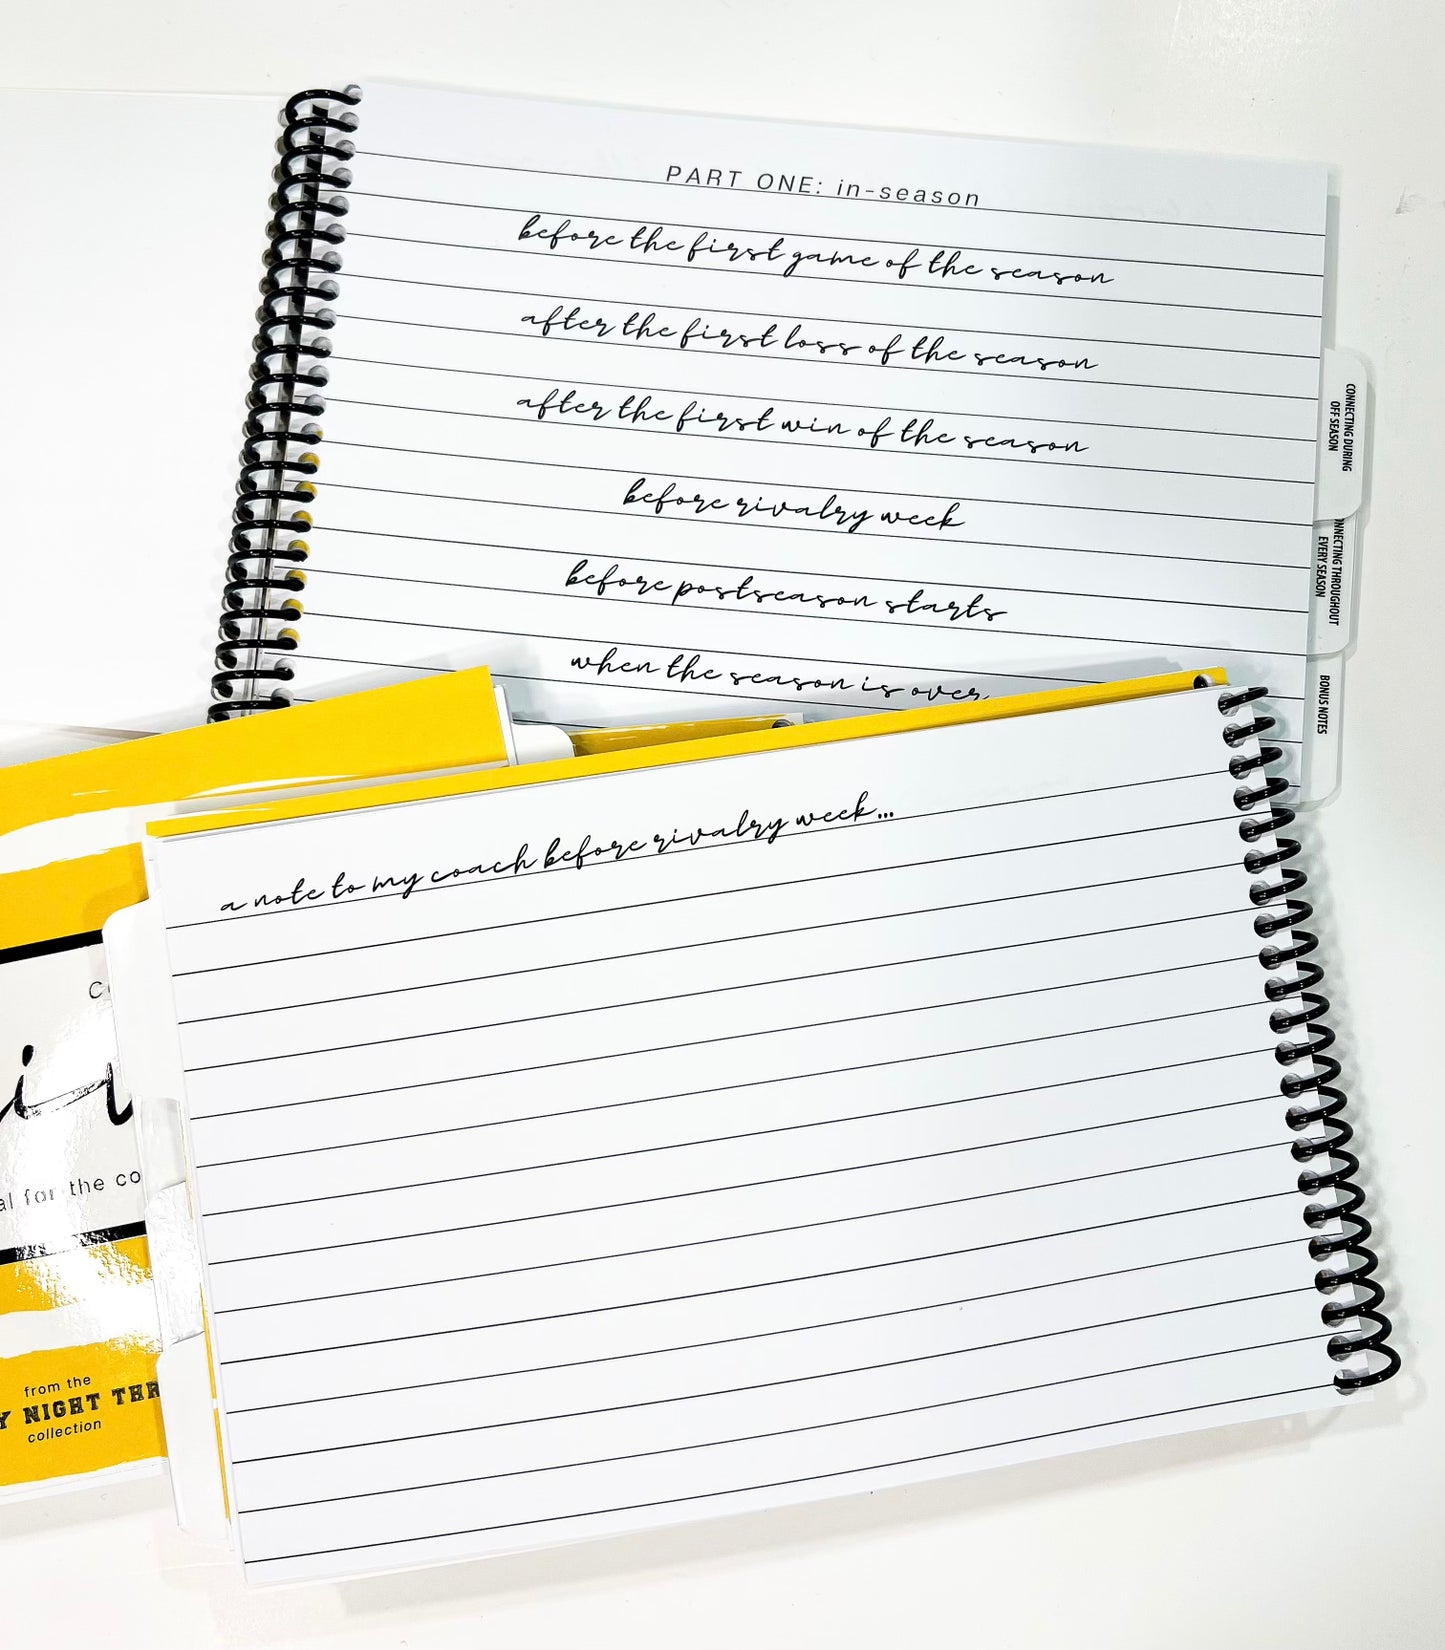 PART ONE: in-season
before the first game of the season
after the first loss of the season
after the first win of the season
before rivalry week
before postseason starts
when the season is over
CONNECTING DURING
OFF SEASON
THROUGHOUT
EVERY SEASON
BONUS NOTES
a note to my coach before rivalry week...
for the
from the
NIGHT
collection